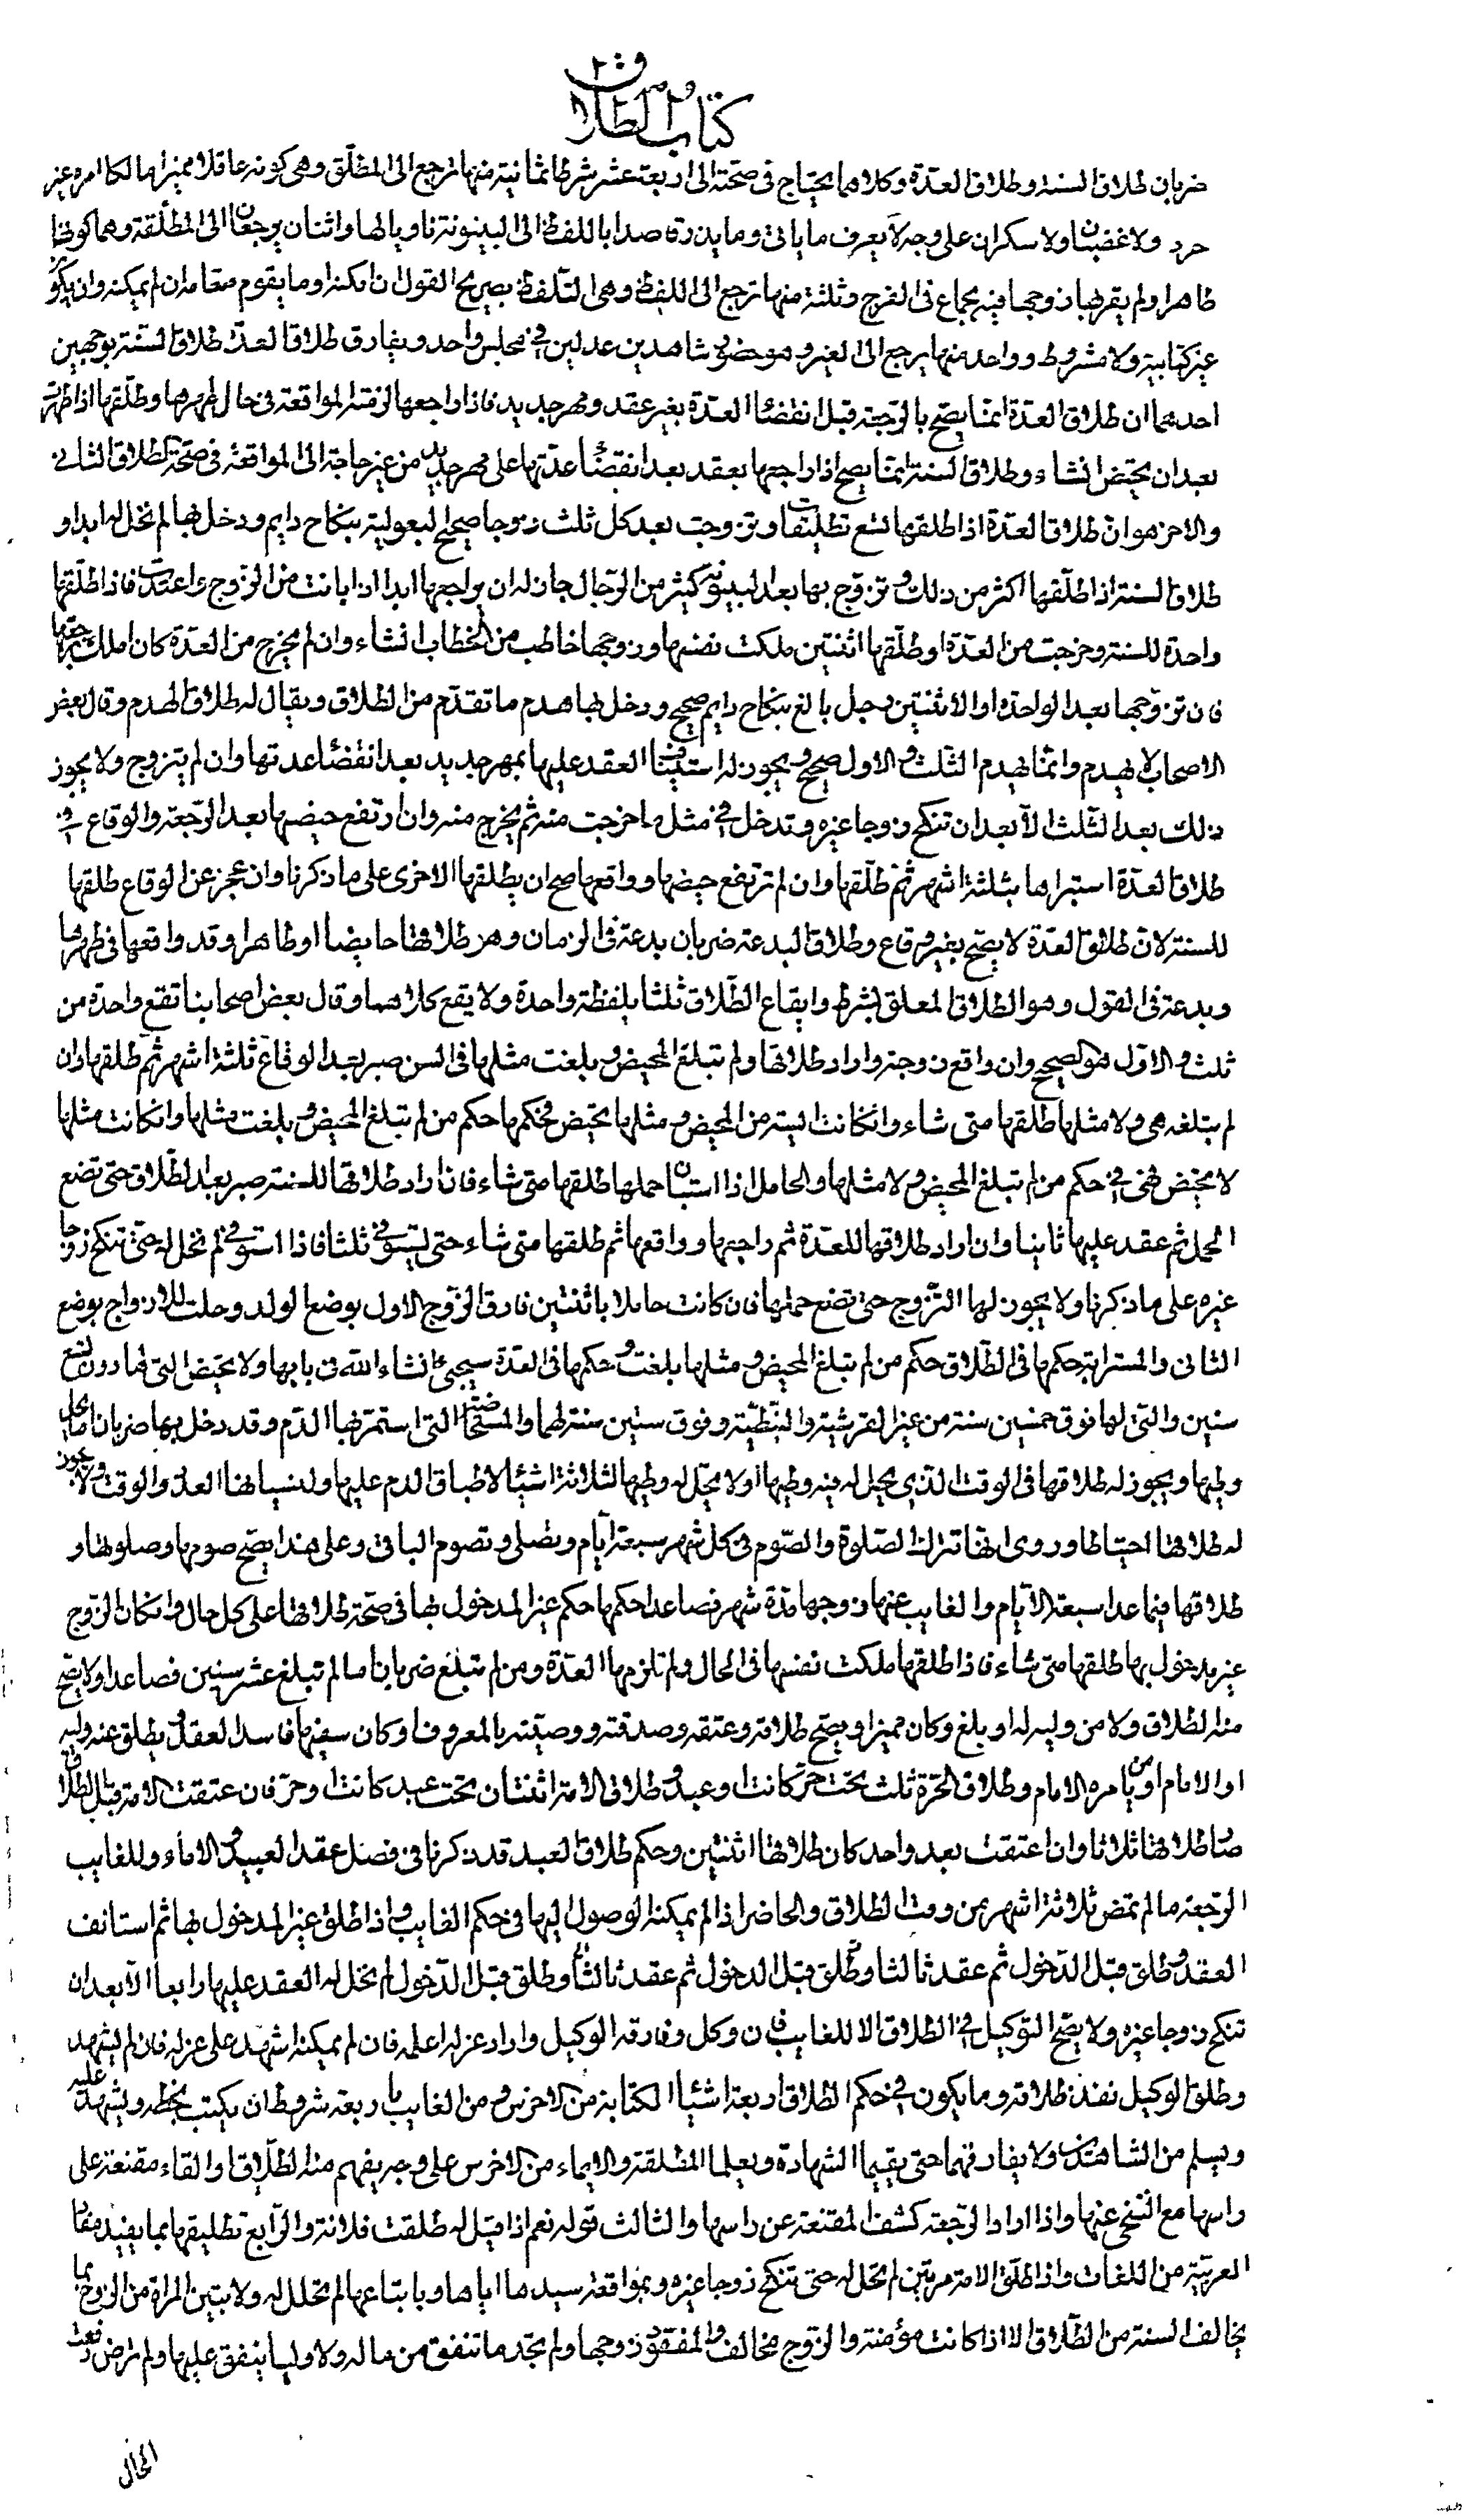 كتاب الطلاق
ضربان طلاق السنة وطلاق العدة وكلاهما يحتاج فى صحته الى اربعة عشر شرطا ثمانية منها ترجع الى المطلق وهى كونه عاقلا مميزا مالكا امره غير
حرد ولا غضبان ولا سكران على وجه لا يعرف ما ياتى وما يذره قاصدا باللفظ الى البينونة ناويا لها واثنان يرجعان الى المطلقة وهما كونها
طاهرا ولم يقربها زوجها فيه بجماع فى الفرج وثلثة منها ترجع الى اللفظ وهى التلفظ بصريح القول ان امكنه او ما يقوم مقامه ان لم يمكنه وان يكون
غير كتابية ولا مشروط وواحد منها يرجع الى الغير وهو حضور شاهدين عدلين فى مجلس واحد ويفارق طلاق العدة طلاق السنة بوجهين
احدهما ان طلاق العدة انما يصح بالرجعة قبل انقضاء العدة بغير عقد ومهر جديد فاذا راجعها لزمته المواقعة فى حال طهرها وطلقها اذا طهرت
بعد ان تحيض ان شاء وطلاق السنة انما يصح اذا راجعها بعقد بعد انقضاء عدتها على مهر جديد من غير حاجة الى المواقعة فى صحة الطلاق الثانى
والاخر هو ان طلاق العدة اذا طلقها تسع تطليقات وتزوجت بعد كل ثلث زوجا صحيح البعولية بنكاح دايم ودخل بها لم تحل له ابدا و
طلاق السنة اذا طلقها اكثر من ذلك وتزوج بها بعد البينونة كثير من الرجال جاز له ان يراجعها ابدا اذا بانت من الزوج واعتدت فاذا طلقها
واحدة للسنة وخرجت من العدة او طلقها اثنتين ملكت نفسها وزوجها خاطب من الخطاب ان شاء وان لم يخرج من العدة كان املك برجعتها
فان تزوجها بعد الواحدة او الاثنتين رجل بالغ بنكاح دايم صحيح ودخل بها هدم ما تقدم من الطلاق ويقال له طلاق الهدم وقال بعض
الاصحاب لا يهدم وانما يهدم الثلث والاول صحيح ويجوز له استيناف العقد عليها بمهر جديد بعد انقضاء عدتها وان لم يتزوج ولا يجوز
ذلك بعد الثلث الا بعد ان تنكح زوجا غيره وتدخل فى مثل ما خرجت منه ثم يخرج منه وان ارتفع حيضها بعد الرجعة والوقاع فى
طلاق العدة استبراها بثلثة اشهر ثم طلقها وان لم ترتفع حيضها وواقعها صح ان يطلقها الاخرى على ما ذكرنا وان عجز عن الوقاع طلقها
للسنة لان طلاق العدة لا يصح بغير وقاع وطلاق البدعة ضربان بدعة فى الزمان وهو طلاقها حايضا او طاهرا وقد واقعها فى طهرها
وبدعة فى القول وهو الطلاق المعلق بشرط وايقاع الطلاق ثلثا بلفظة واحدة ولا يقع كلاهما وقال بعض اصحابنا تقع واحدة من
ثلث والاول هو الصحيح وان واقع زوجته واراد طلاقها ولم تبلغ المحيض وبلغت مثلها فى السن صبر بعد الوقاع ثلثة اشهر ثم طلقها وان
لم تبلغه هى ولا مثلها طلقها متى شاء وان كانت ايسة من المحيض ومثلها تحيض فحكمها حكم من لم تبلغ المحيض وبلغت مثلها وان كانت مثلها
لا تحيض فهى فى حكم من لم تبلغ المحيض ولا مثلها والحامل اذا استبان حملها طلقها متى شاء فان اراد طلاقها للسنة صبر بعد الطلاق حتى تضع
الحمل ثم عقد عليها ثانيا وان اراد طلاقها للعدة ثم راجعها وواقعها ثم طلقها متى شاء حتى يستوفى ثلثا فاذا استوفى لم تحل له حتى تنكح زوجا
غيره على ما ذكرنا ولا يجوز لها التزوج حتى تضع حملها فان كانت حاملا باثنتين فارق الزوج الاول بوضع الولد وحلت للازواج بوضع
الثانى والمسترابة حكمها فى الطلاق حكم من لم تبلغ المحيض ومثلها بلغت وحكمها فى العدة سيجئ انشاء الله فى بابها ولا تحيض التى لها دون تسع
سنين والتى لها فوق خمسين سنة من غير القرشية والنبطية وفوق ستين سنة لهما والمستحاضة التى استمر بها الدم وقد دخل بها ضربان اما يحل
وطيها ويجوز له طلاقها فى الوقت الذى يحل له فيه وطيها او لا يحل له وطيها لثلاثة اشياء لاطباق الدم عليها ولنسيانها العدد والوقت ولا يجوز
له طلاقها احتياطا وروى انها تترك الصلوة والصوم فى كل شهر سبعة ايام وتصلى وتصوم الباقى وعلى هذا يصح صومها وصلوتها و
طلاقها فيما عدا سبعة الايام والغايب عنها زوجها مدة شهر فصاعدا حكمها حكم غير المدخول بها فى صحة طلاقها على كل حال وان كان الزوج
غير مدخول بها طلقها متى شاء فاذا طلقها ملكت نفسها فى الحال ولم تلزمها العدة ومن لم تبلغ ضربان اما لم تبلغ عشر سنين فصاعدا ولا يصح
منه الطلاق ولا من وليه له او بلغ وكان مميزا ويصح طلاقه وعتقه وصدقته ووصيته بالمعروف او كان سفيها فاسد العقل ويطلق عنه وليه
او الامام او من يامره الامام وطلاق الحرة ثلث تحت حر كانت او عبد وطلاق الامة اثنتان تحت عبد كانت او حر فان عتقت الامة قبل الطلاق
صار طلاقها ثلاثا وان اعتقت بعد واحد كان طلاقها اثنتين وحكم طلاق العبد قد ذكرنا فى فصل عقد العبيد والاماء وللغايب
الرجعة ما لم تمض ثلاثة اشهر من وقت الطلاق والحاضر اذا لم يمكنه الوصول اليها فى حكم الغايب واذا طلق غير المدخول بها ثم استانف
العقد وطلق قبل الدخول ثم عقد ثالثا وطلق قبل الدخول ثم عقد ثالثا وطلق قبل الدخول لم تحل له العقد عليها رابعا الا بعد ان
تنكح زوجا غيره ولا يصح التوكيل فى الطلاق الا للغايب فان وكل وفارقه الوكيل واراد عزله اعلمه فان لم يمكنه اشهد على عزله فان لم يشهد
وطلق الوكيل نفذ طلاقه وما يكون فى حكم الطلاق اربعة اشياء الكتابة من الاخرس ومن الغايب باربعة شروط ان يكتب بخطه ويشهد عليه
ويسلم من الشاهدين ولا يفارقهما حتى يقيما الشهادة ويعلما المطلقة والايماء من الاخرس على وجه يفهم منه الطلاق والقاء مقنعة على
راسها مع التنحى عنها واذا اراد الرجعة كشف المقنعة عن راسها والثالث قوله نعم اذا قيل له طلقت فلانة والرابع تطليقها بما يفيد مفاد
العربية من اللغات واذا طلق الامة مرتين لم تحل له حتى تنكح زوجا غيره وبمواقعة سيدها اياها وبابتياعها لم تحلل له ولا تبين المراة من الزوج بما
يخالف السنة من الطلاق الا اذا كانت مؤمنة والزوج مخالف والمفقود زوجها ولم تجد ما تنفق من ماله ولا وليا ينفق عليها ولم ترض رفعت
الحال